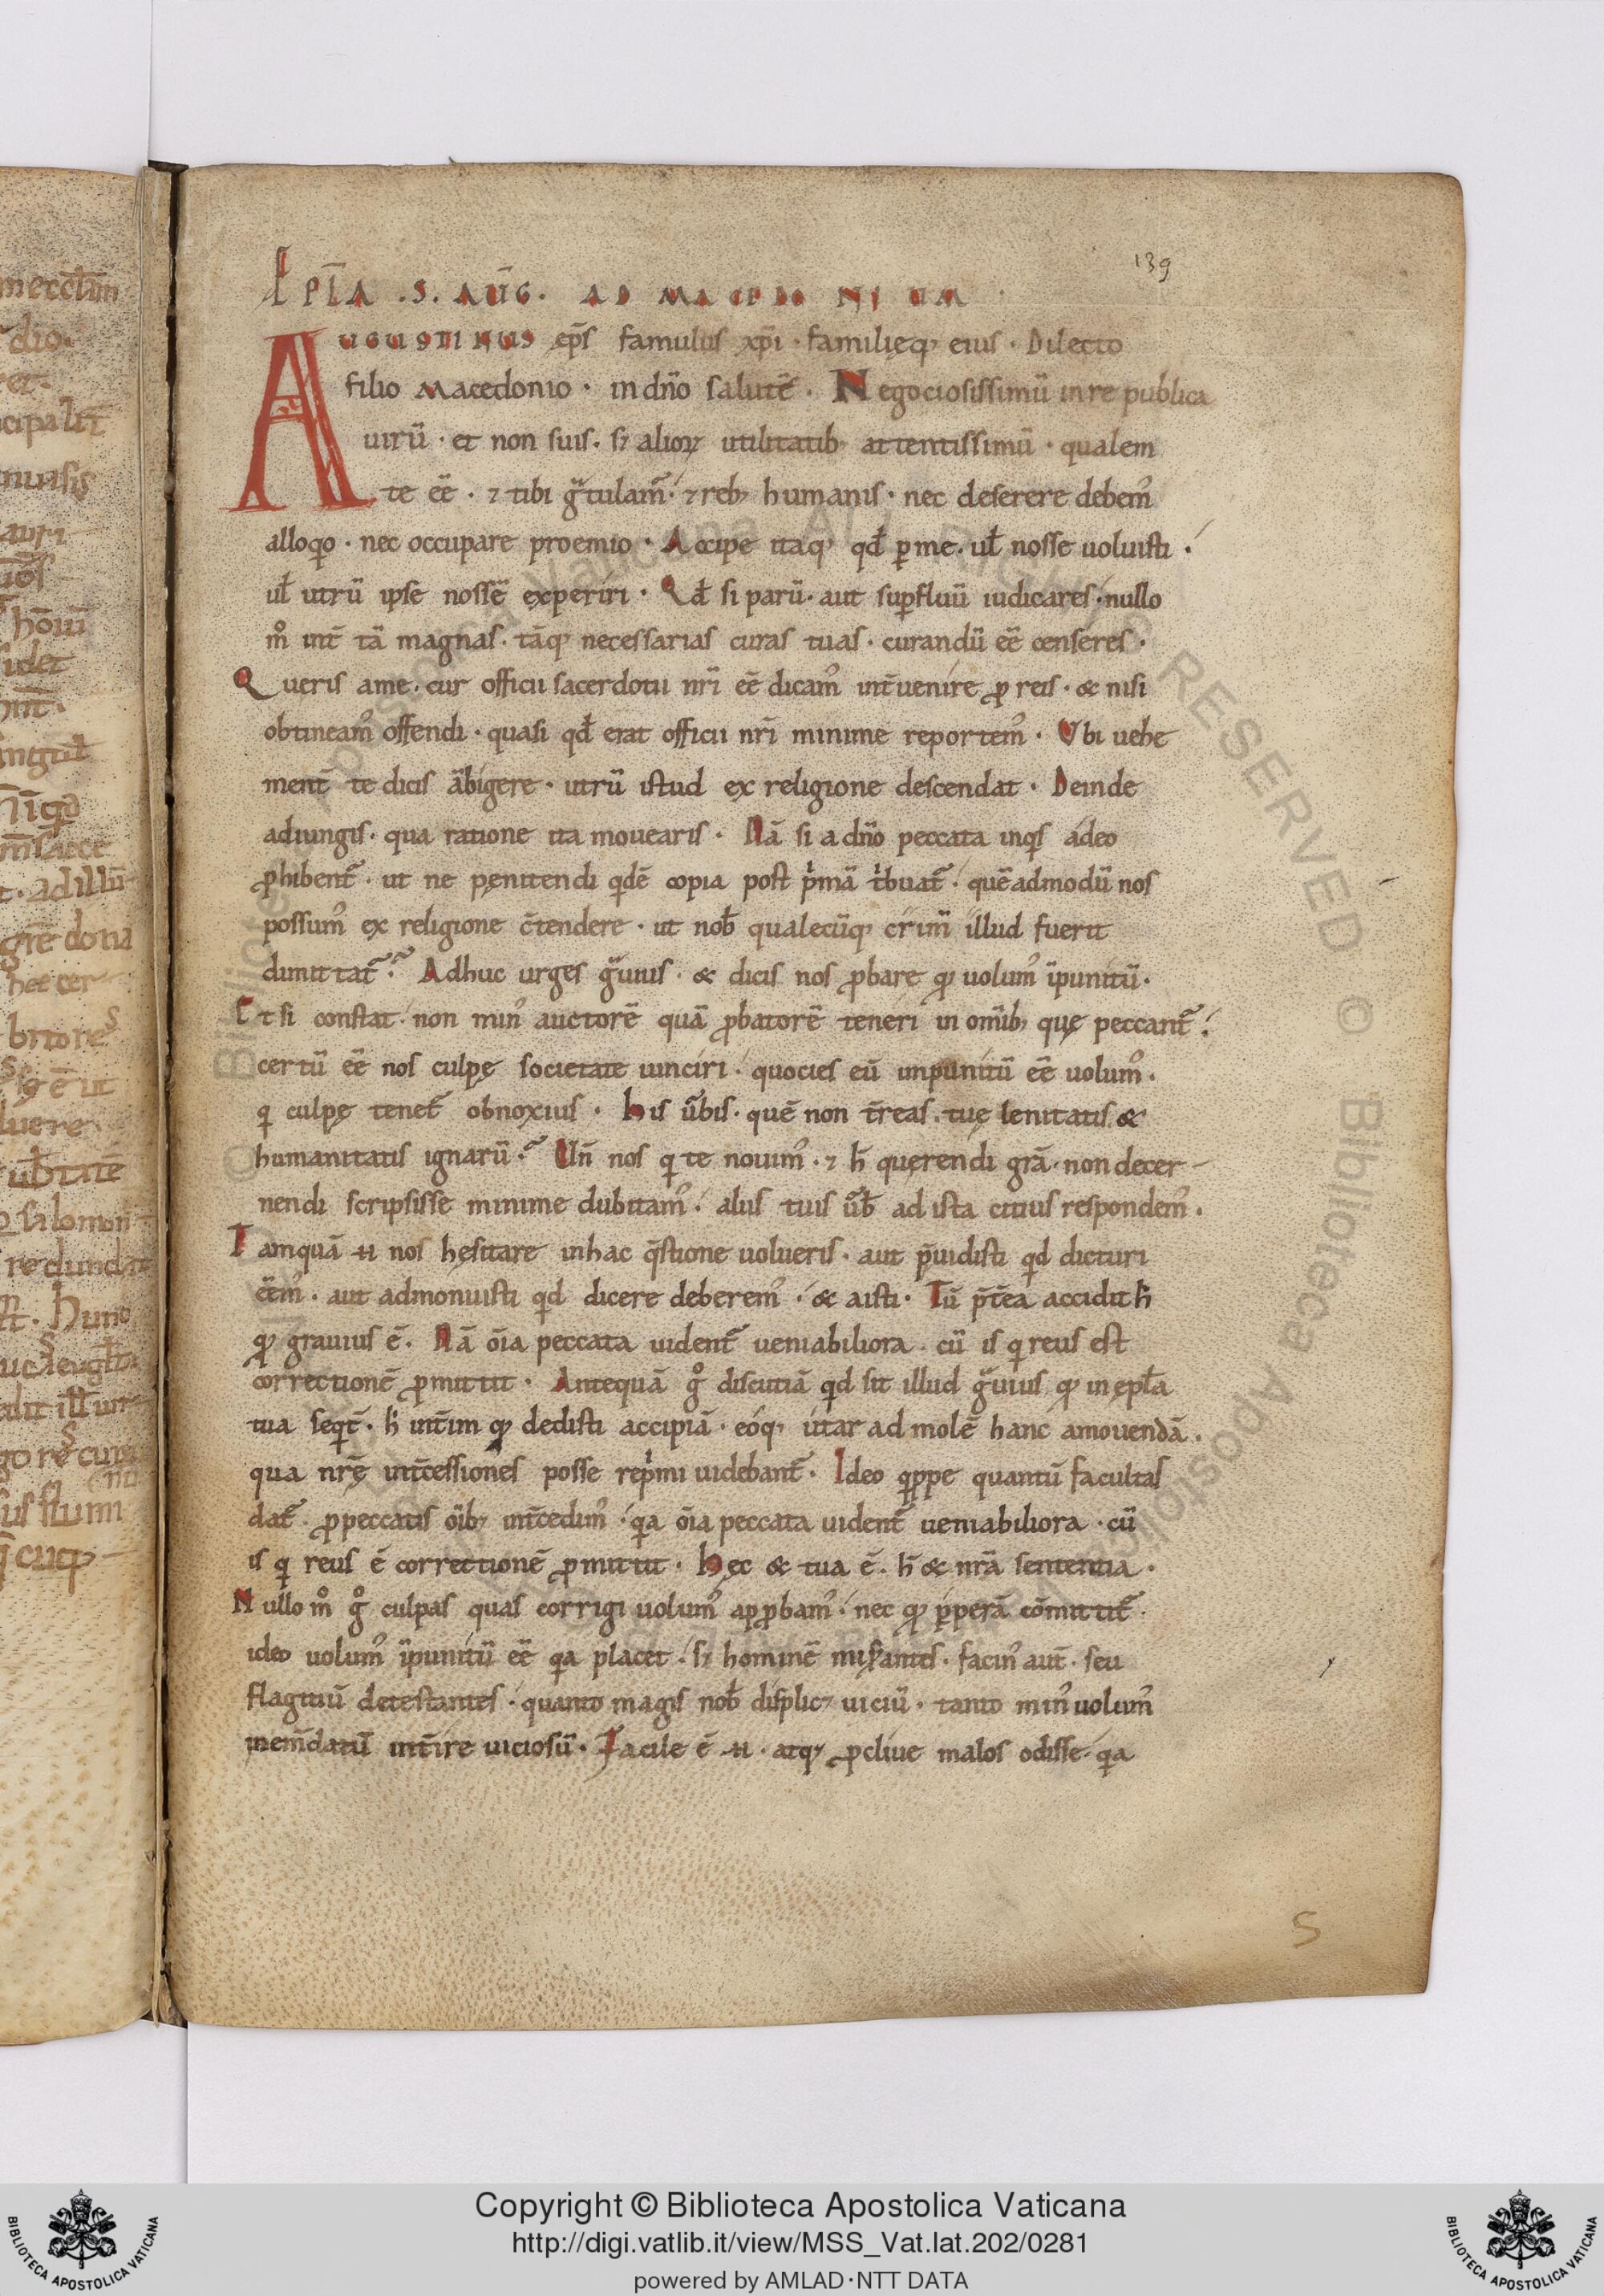 139
EPĪA .S. AŪG. AD MACEDONIUM
AUGUSTINUS ep̄s famulus xp̄i · familięq; eius · Dilecto
filio Macedonio · in dn̄o salutē · Negociosissimū in re publica
uirū · et non suis · sꝫ alioꝝ utilitatib; attentissimū · qualem
te eē̄ · ⁊ tibi gͣtulam̄ · ⁊ reb; humanis · nec deserere debem᾿
alloqͦo · nec occupare proemio · Accipe itaq; qđ p̱ me · ul̄ nosse uoluisti ·
ul̄ utrū ipse nossē experiri · Qđ si parū · aut sup̱fluū iudicares · nullo
mͦ int̄ tā magnas · tāq; necessarias curas tuas · curandū eē̄ censeres ·
Queris a me · cur officii sacerdotii nr̄i eē̄ dicam᾿ int̄uenire ꝓ reis · & nisi
obtineam᾿ offendi · quasi qđ erat officii nr̄i minime reportem᾿ · Ubi uehe
ment̄ te dicis ābigere · utrū istud ex religione descendat · Deinde
adiungis · qua ratione ita mouearis · Nā si a dn̄o peccata inqͥs adeo
ꝓhibent᷑ · ut ne pęnitendi qͥdē copia post pͥmā tͥbuat᷑ · quēadmodū nos
possum᾿ ex religione c̄tendere · ut nob̄ qualecūq; crimē illud fuerit
dimittat᷑ · Adhuc urges gͣuius · & dicis nos ꝓbare qͦ uolum᾿ īpunitū ·
Et si constat · non min᾿ auctorē quā ꝓbatorē teneri in om̄ib; quę peccant᷑ ·
certū eē̄ nos culpę societate uinciri · quocies eū impunitū eē̄ uolum᾿ ·
qͥ culpę tenet᷑ obnoxius · His ūbis · quē non t̄reas · tuę lenitatis &
humanitatis ignarū · Un̄ nos qͥ te nouim᾿ · ⁊ h̄ querendi grā · non decer-
nendi scripsisse minime dubitam᾿ · aliis tuis ūb̄ ad ista citius respondem᾿ ·
Tamquā n̄ nos hęsitare in hac q̄stione uolueris · aut p̄uidisti qͥd dicturi
eēm᾿ · aut admonuisti qͥd dicere deberem᾿ · & aisti · Tū p̄t̄ea accidit h̄
qͦ grauius ē · Nā ōia peccata uident᷑ ueniabiliora · cū is qͥ reus est
correctionē ꝓmittit · Antequā gͦ discutiā qͥd sit illud gͣuius qͦ in epl̄a
tua seqͥt᷑ · h̄ int̄im qͦ dedisti accipiā · eoq; utar ad molē hanc amouendā ·
qua nr̄ę int̄cessiones posse repͥmi uidebant᷑ · Ideo qͥppe quantū facultas
dat᷑ · ꝓ peccatis ōib; int̄cedim᾿ · qͥa ōia peccata uident᷑ ueniabiliora · cū
is qͥ reus ē correctionē ꝓmittit · Hęc & tua ē · h̄ & nr̄a sententia ·
Nullo mͦ gͦ culpas quas corrigi uolum᾿ apꝓbam᾿ · nec qͦ p̱perā cōmittit᷑ ·
ideo uolum᾿ īpunitū eē̄ qͥa placet · sꝫ hominē mis̱antes · facin᾿ aut̄ · seu
flagitiū detestantes · quanto magis nob̄ displicꝫ uiciū · tanto min᾿ uolum᾿
inemdatū int̄ire uiciosū · Facile ē n̄ · atq; ꝓcliue malos odisse · qͥa
S
Copyright © Biblioteca Apostolica Vaticana
http://digi.vatlib.it/view/MSS_Vat.lat.202/0281
powered by AMLAD·NTT DATA
BIBLIOTECA APOSTOLICA VATICANA
BIBLIOTECA APOSTOLICA VATICANA